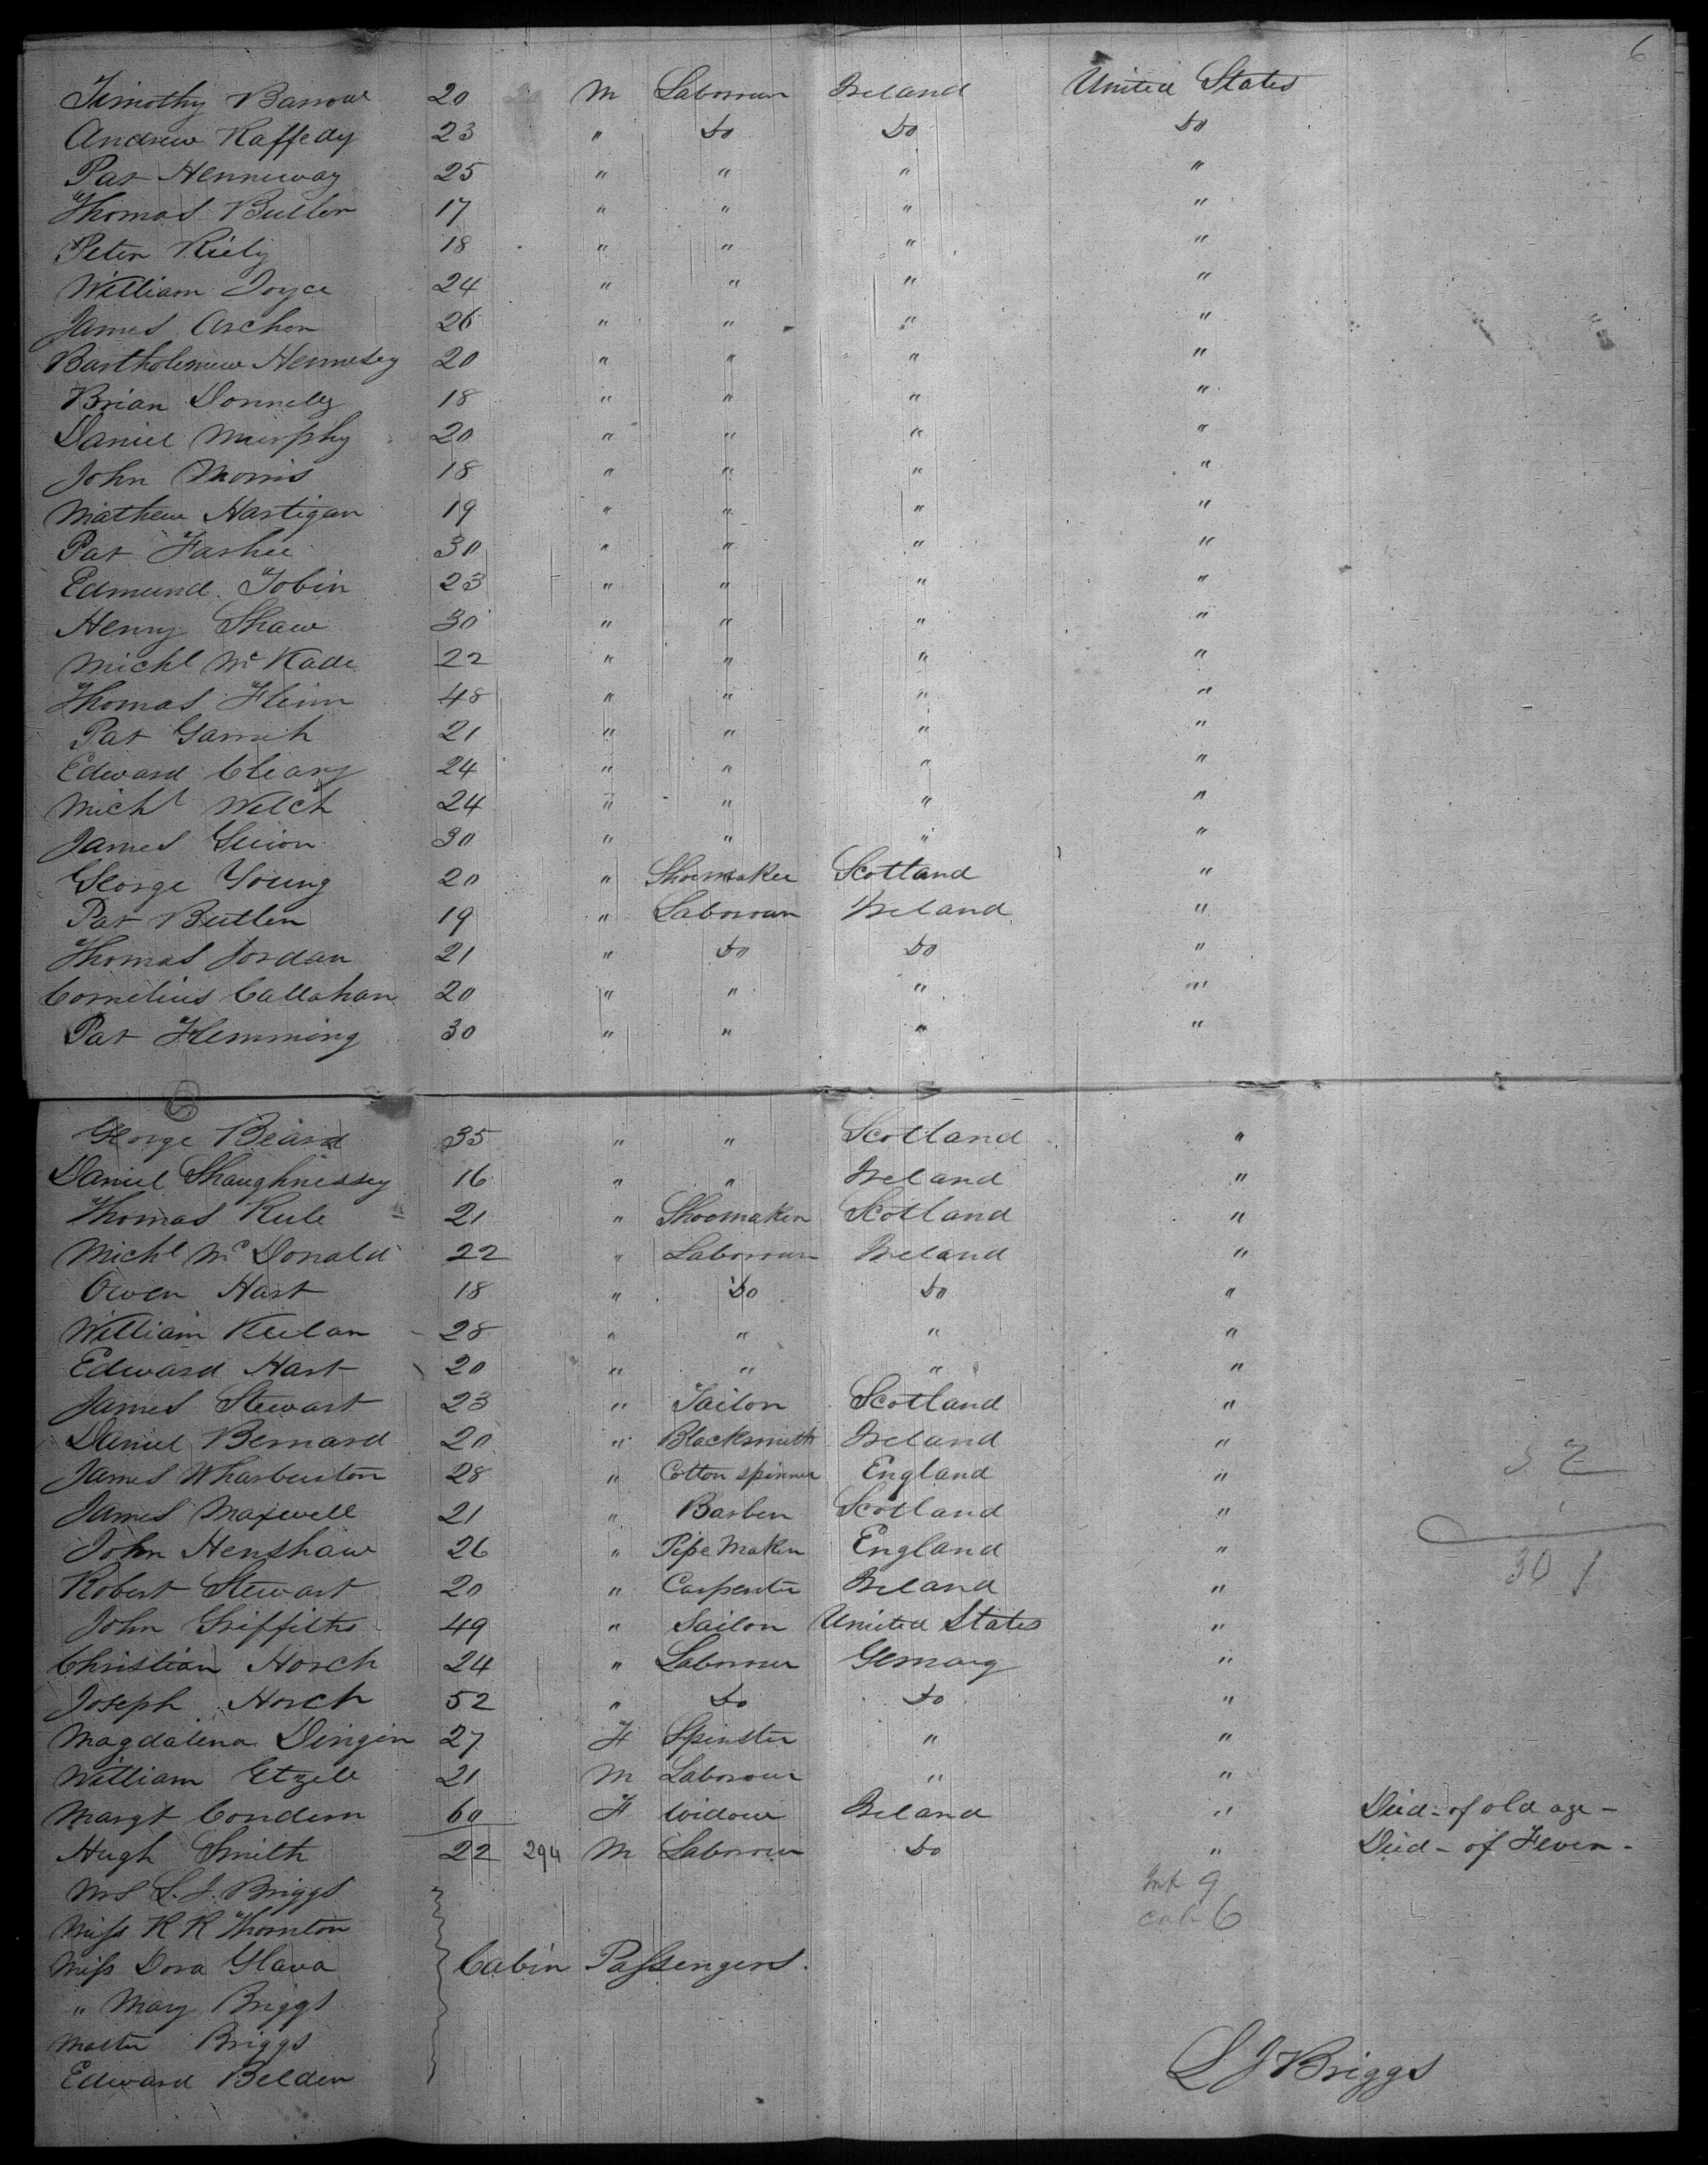 6
Timothy Barrow 20 M Labourer Ireland United States
Andrew Raffedy 23 " Do Do Do
Pat Henneway 25 " " " "
Thomas Butler 17 " " " "
Peter Riely 18 " " " "
William Joyce 24 " " " "
James Archer 26 " " " "
Bartholemew Hennesey 20 " " " "
Brian Donnelly 18 " " " "
Daniel Murphy 20 " " " "
John Morris 18 " " " "
Mathew Hartigan 19 " " " "
Pat 30 " " " "
Edmund Tobin 23 " " " "
Henry Shaw 30 " " " "
Michl McKade 22 " " " "
Thomas Flinn 48 " " " "
Pat 21 " " " "
Edward Cleary 24 " " " "
Michl Welch 24 " " " "
James Guion 30 " " " "
George Young 20 " Shoemaker Scotland "
Pat Butler 19 " Labourer Ireland "
Thomas Jordan 21 " Do Do "
Cornelius Callahan 20 " " " "
Pat Flemming 30 " " " "
6
George Beard 35 " " Scotland "
Daniel Shaughnessey 16 " " Ireland "
Thomas Rule 21 " Shoemaker Scotland "
Michl McDonald 22 " Labourer Ireland "
Owen Hart 18 " Do Do "
William Keelan 28 " " " "
Edward Hart 20 " " " "
James Stewart 23 " Tailor Scotland "
Daniel Bernard 20 " Blacksmith Ireland "
James Wharburton 28 " Cotton spinner England "
James Maxwell 21 " Barber Scotland "
John Henshaw 26 " Pipe Maker England "
Robert Stewart 20 " Carpenter Ireland "
John Griffiths 49 " Sailor United States "
Christian Horch 24 " Labourer Gemany "
Joseph Horch 52 " Do Do "
Magdalena Dingin 27 F Spinster " "
William Etzell 21 M Labourer " "
Margt Condern 60 F Widow Ireland " Died - of old age -
Hugh Smith 22 294 M Labourer Do " Died - of Fever -
Mrs L. J. Briggs Inf 9
Miss R R Thornton cab 6
Miss Dora Glava Cabin Passengers.
" Mary Briggs
Master Briggs
Edward Belden
30 1
L J Briggs